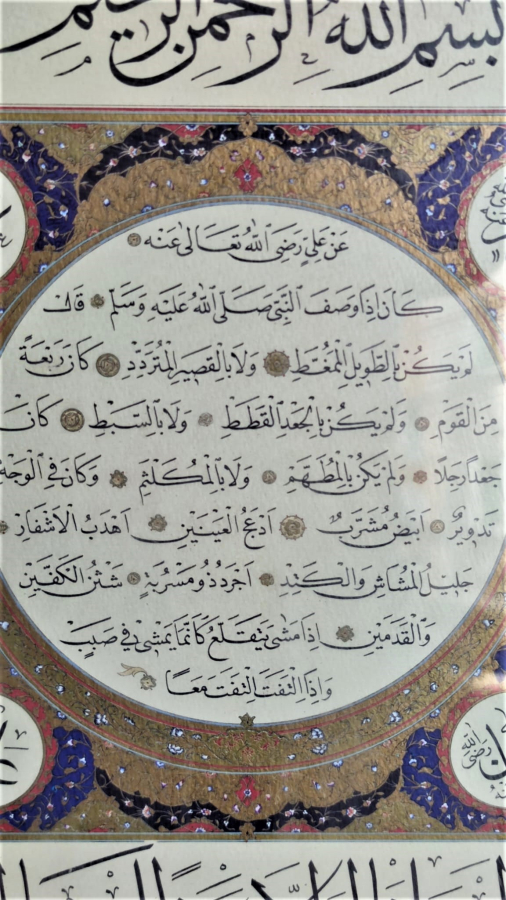 بِسْمِ اللهِ الرَّحْمٰنِ الرَّحِيمِ
عَنْ عَلِيٍّ رَضِيَ اللهُ تَعَالٰى عَنْهُ
كَانَ إِذَا وَصَفَ النَّبِيَّ صَلَّى اللهُ عَلَيْهِ وَسَلَّمَ قَالَ
لَمْ يَكُنْ بِالطَّوِيلِ الْمُمَّغَطِ وَلَا بِالْقَصِيرِ الْمُتَرَدِّدِ كَانَ رَبْعَةً
مِنَ الْقَوْمِ وَلَمْ يَكُنْ بِالْجَعْدِ الْقَطَطِ وَلَا بِالسَّبِطِ كَانَ
جَعْدًا رَجِلًا وَلَمْ يَكُنْ بِالْمُطَهَّمِ وَلَا بِالْمُكَلْثَمِ وَكَانَ فِي الْوَجْهِ
تَدْوِيرٌ اَبْيَضُ مُشْرَبٌ اَدْعَجُ الْعَيْنَيْنِ اَهْدَبُ الْاَشْفَارِ
جَلِيلُ الْمُشَاشِ وَالْكَتَدِ اَجْرَدُ ذُو مَسْرُبَةٍ شَثْنُ الْكَفَّيْنِ
وَالْقَدَمَيْنِ اِذَا مَشٰى يَتَقَلَّعُ كَاَنَّمَا يَمْشِي فِي صَبَبٍ
وَاِذَا الْتَفَتَ الْتَفَتَ مَعًا
رَضِيَ اللهُ